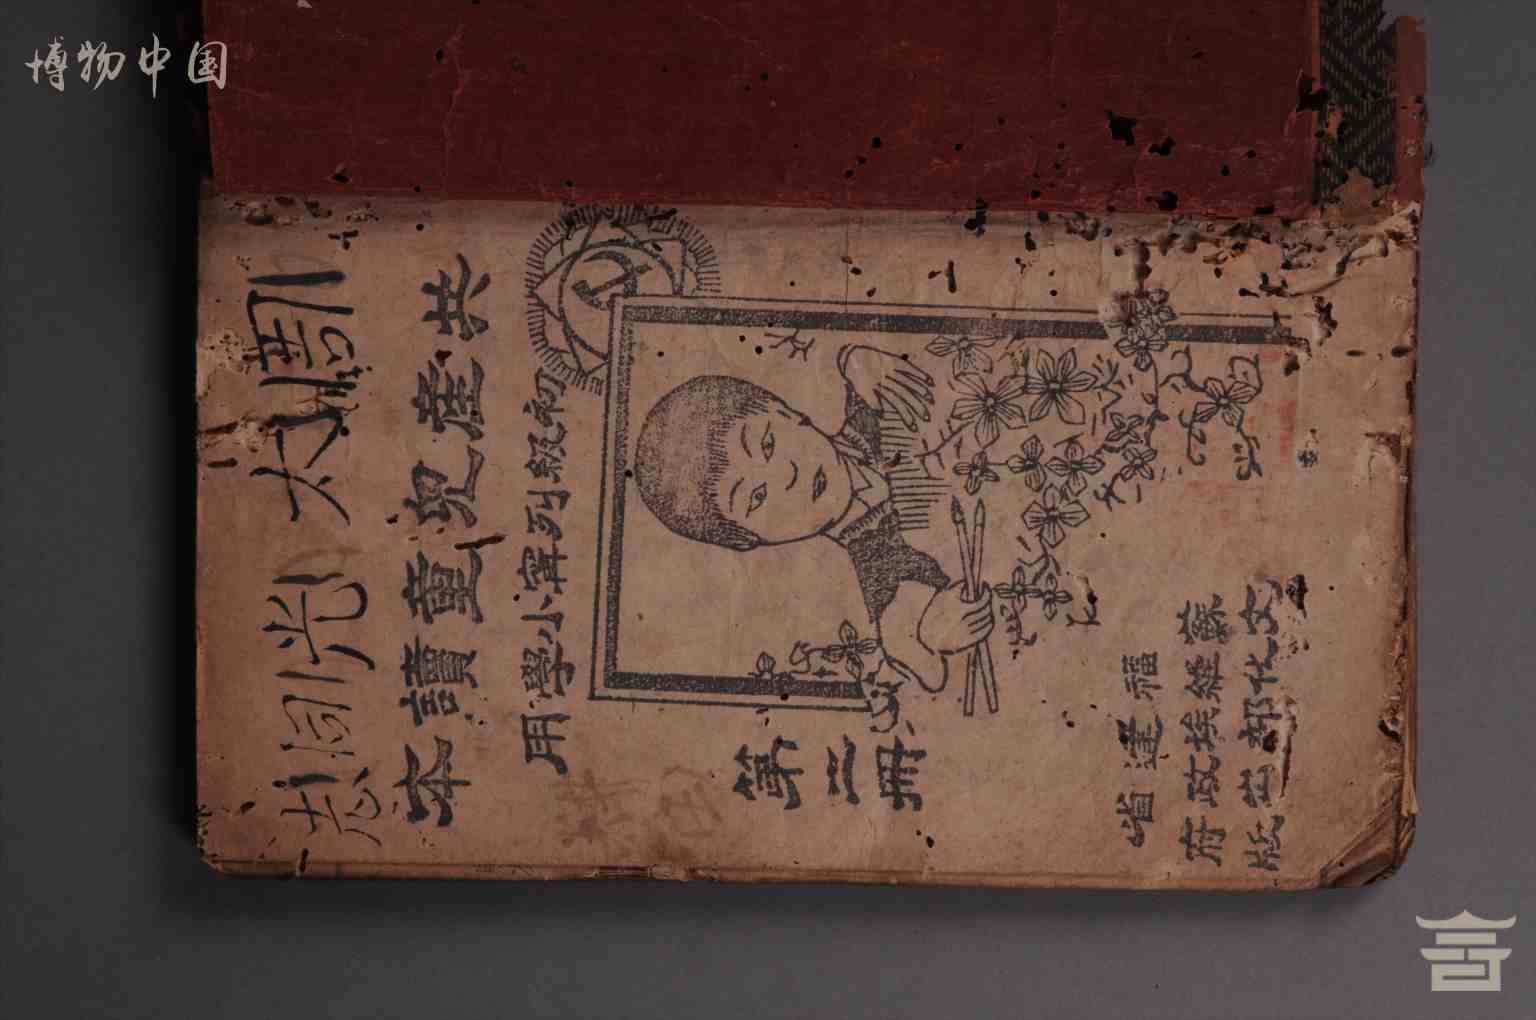 博物中国
共產兒童讀本
初級列寧小學用
第二冊
福建省
蘇維埃政府
文化部出版